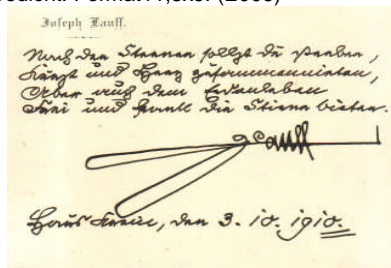 Joseph Lauff.
Nach den Sternen sollst du streben,
und Herz zusammennieten,
Aber auch dem Erdenleben
Frei und frank die Stirne bieten.
Lauff
Haus den 3. 10. 1910.